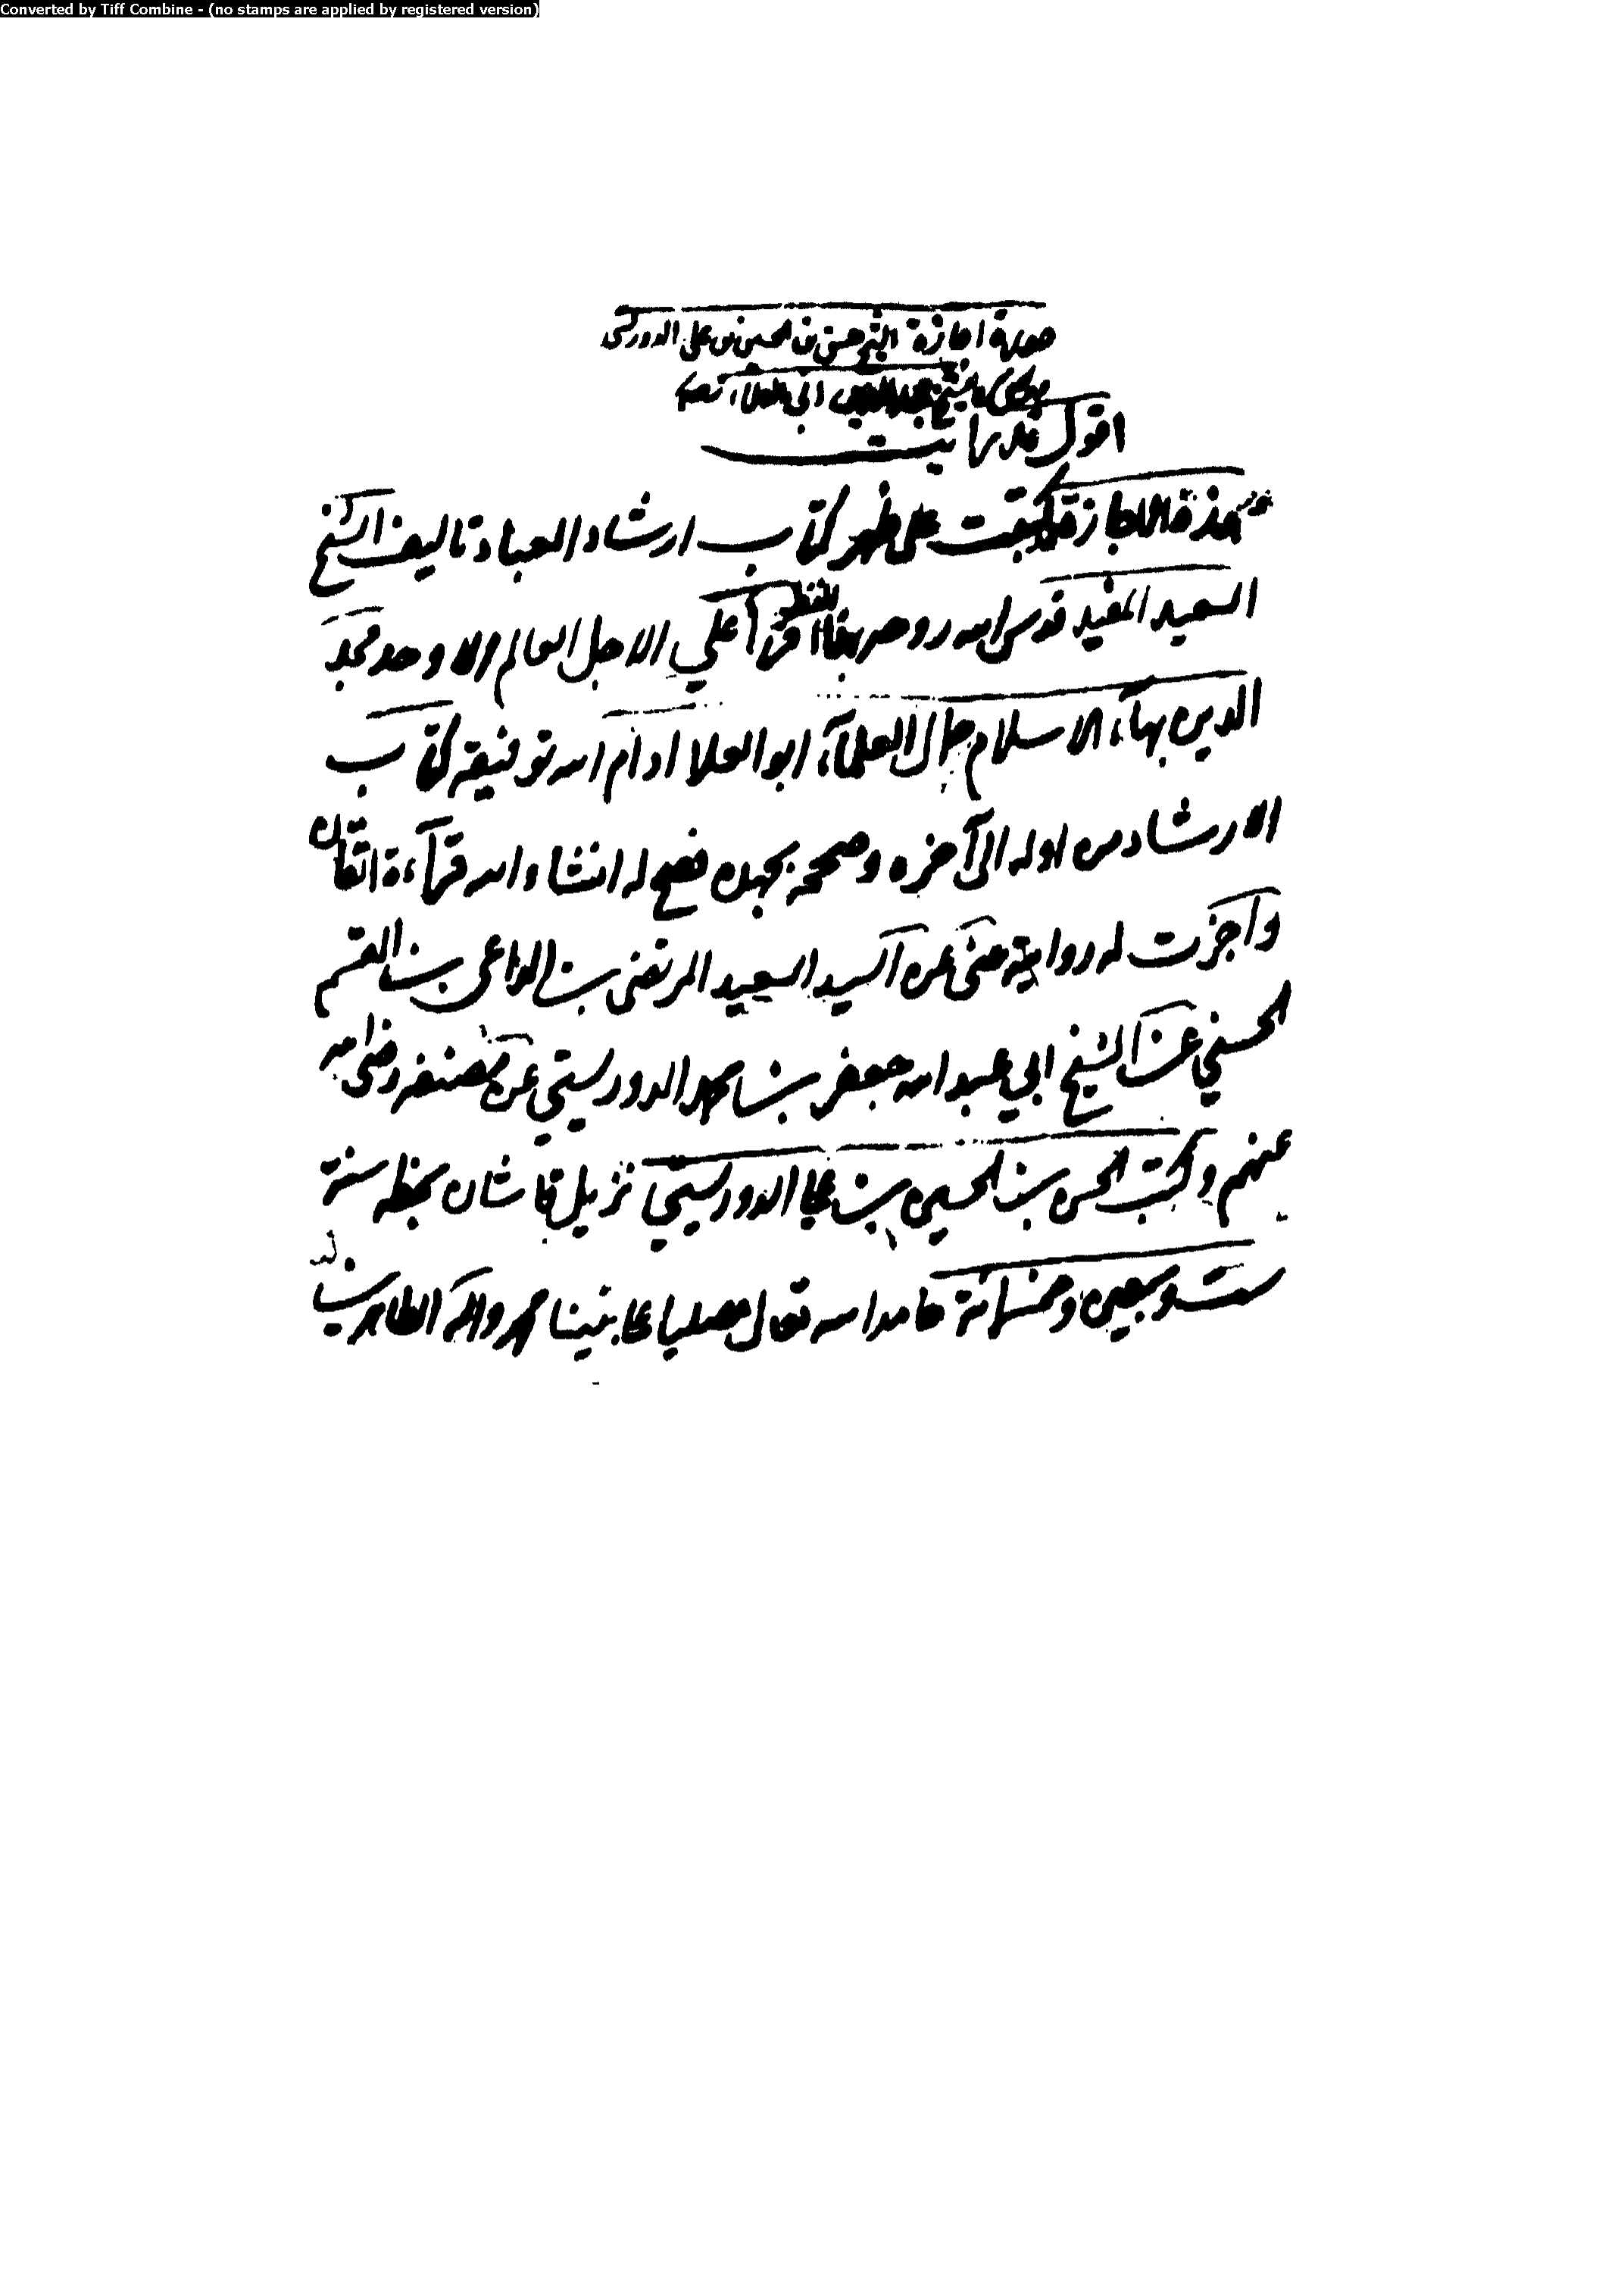 Converted by Tiff Combine - (no stamps are applied by registered version)
صورة اجازة الشيخ حسن بن الحسين بن علي الدوريستي
للشيخ مجد الدين ابي العلاء
اقول قد رايت
هذه الاجازة قد كتبت على ظهر كتاب ارشاد العباد تاليف الشيخ
السعيد المفيد قدس الله روحه بهذا اللفظ قرأ علي الاجل العالم الاوحد مجد
الدين بهاء الاسلام جمال العلماء ابو العلا ادام الله توفيقه كتاب
الارشاد من اوله الى آخره وصححه بجهده فصح له انشاء الله قرآءة اتقان
وأجزت له روايته عني عن السيد السعيد المرتضى بن الداعي بن القسم
الحسني عن الشيخ ابي عبد الله جعفر بن محمد الدوريستي عن مصنفه رضي الله
عنهم وكتب الحسن بن الحسين بن علي الدوريستي نزيل قاشان بخطه سنة
ست وسبعين وخمسمائة حامدا لله تعالى مصليا على نبينا محمد واله الطاهرين